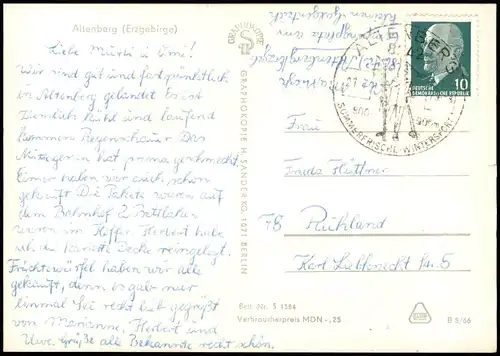 Altenberg (Erzgebirge)
Liebe Mutti u. Omi!
Wir sind gut und fast pünktlich
in Altenberg gelandet. Es ist
ziemlich kühl und laufend
kommen Regenschauer. Das
Mittagessen hat prima geschmeckt.
Eimer haben wir auch schon
gekauft. Die Pakete waren auf
dem Bahnhof. 2 Bettlaken
waren im Koffer. Herbert habe
ich die karierte Decke reingelegt.
Früchtewürfel haben wir alle
gekauft, denn es gab nur
einmal. Sei recht lieb gegrüßt
von Marianne, Herbert und
Uwe. Grüße alle Bekannte recht schön.
GRAPHOKOPIE
GRAPHOKOPIE H. SANDER KG. 1071 BERLIN
ALTENBERG
SOMMERFRISCHE-WINTERSPORT
DEUTSCHE
DEMOKRATISCHE REPUBLIK
10
Frau
Frieda Hüttner
78 Ruhland
Karl Liebknecht Str. 5
Best.-Nr. S 1384
Verbraucherpreis MDN -,25
B 8/66